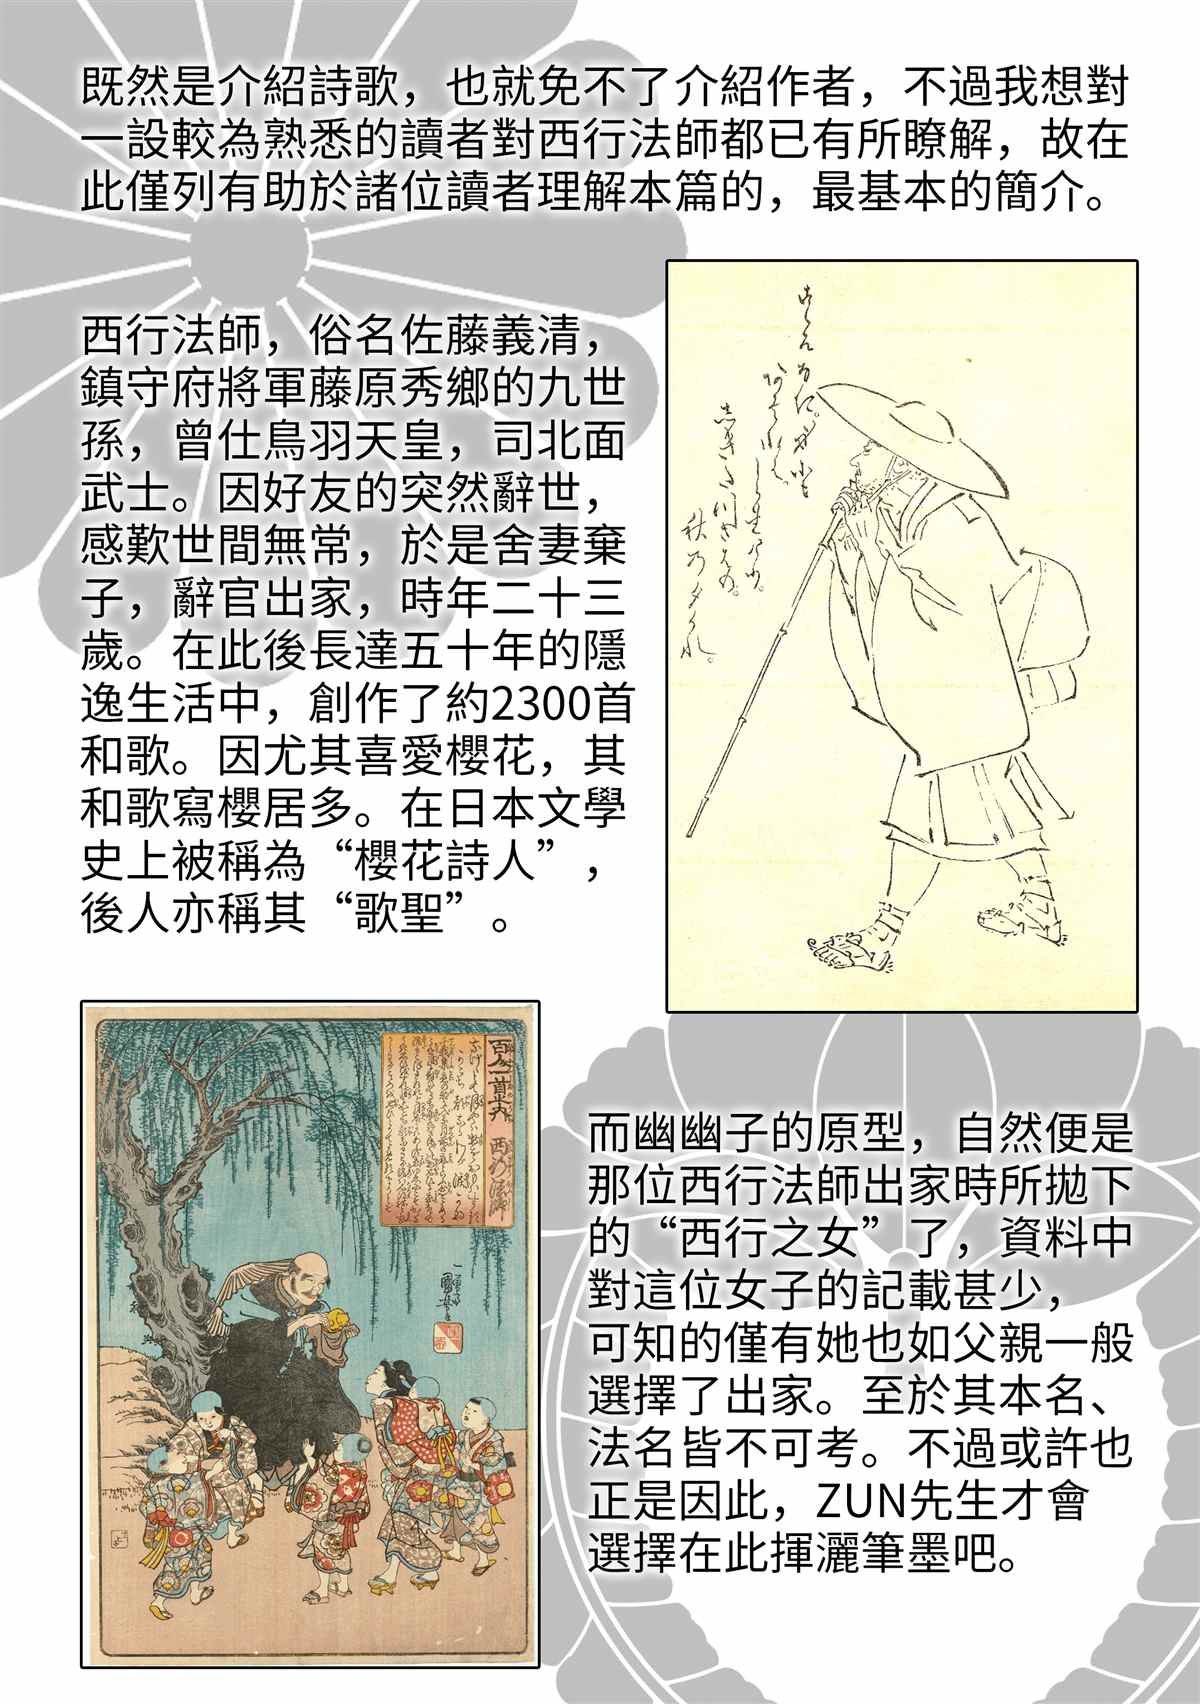 既然是介紹詩歌，也就免不了介紹作者，不過我想對
一設較為熟悉的讀者對西行法師都已有所瞭解，故在
此僅列有助於諸位讀者理解本篇的，最基本的簡介。
西行法師，俗名佐藤義清，
鎮守府將軍藤原秀鄉的九世
孫，曾仕鳥羽天皇，司北面
武士。因好友的突然辭世，
感歎世間無常，於是舍妻棄
子，辭官出家，時年二十三
歲。在此後長達五十年的隱
逸生活中，創作了約2300首
和歌。因尤其喜愛櫻花，其
和歌寫櫻居多。在日本文學
史上被稱為“櫻花詩人”，
後人亦稱其“歌聖”。
秋乃夕くれ。
百人一首之内
西行法師
而幽幽子的原型，自然便是
那位西行法師出家時所拋下
的“西行之女”了，資料中
對這位女子的記載甚少，
可知的僅有她也如父親一般
選擇了出家。至於其本名、
法名皆不可考。不過或許也
正是因此，ZUN先生才會
選擇在此揮灑筆墨吧。